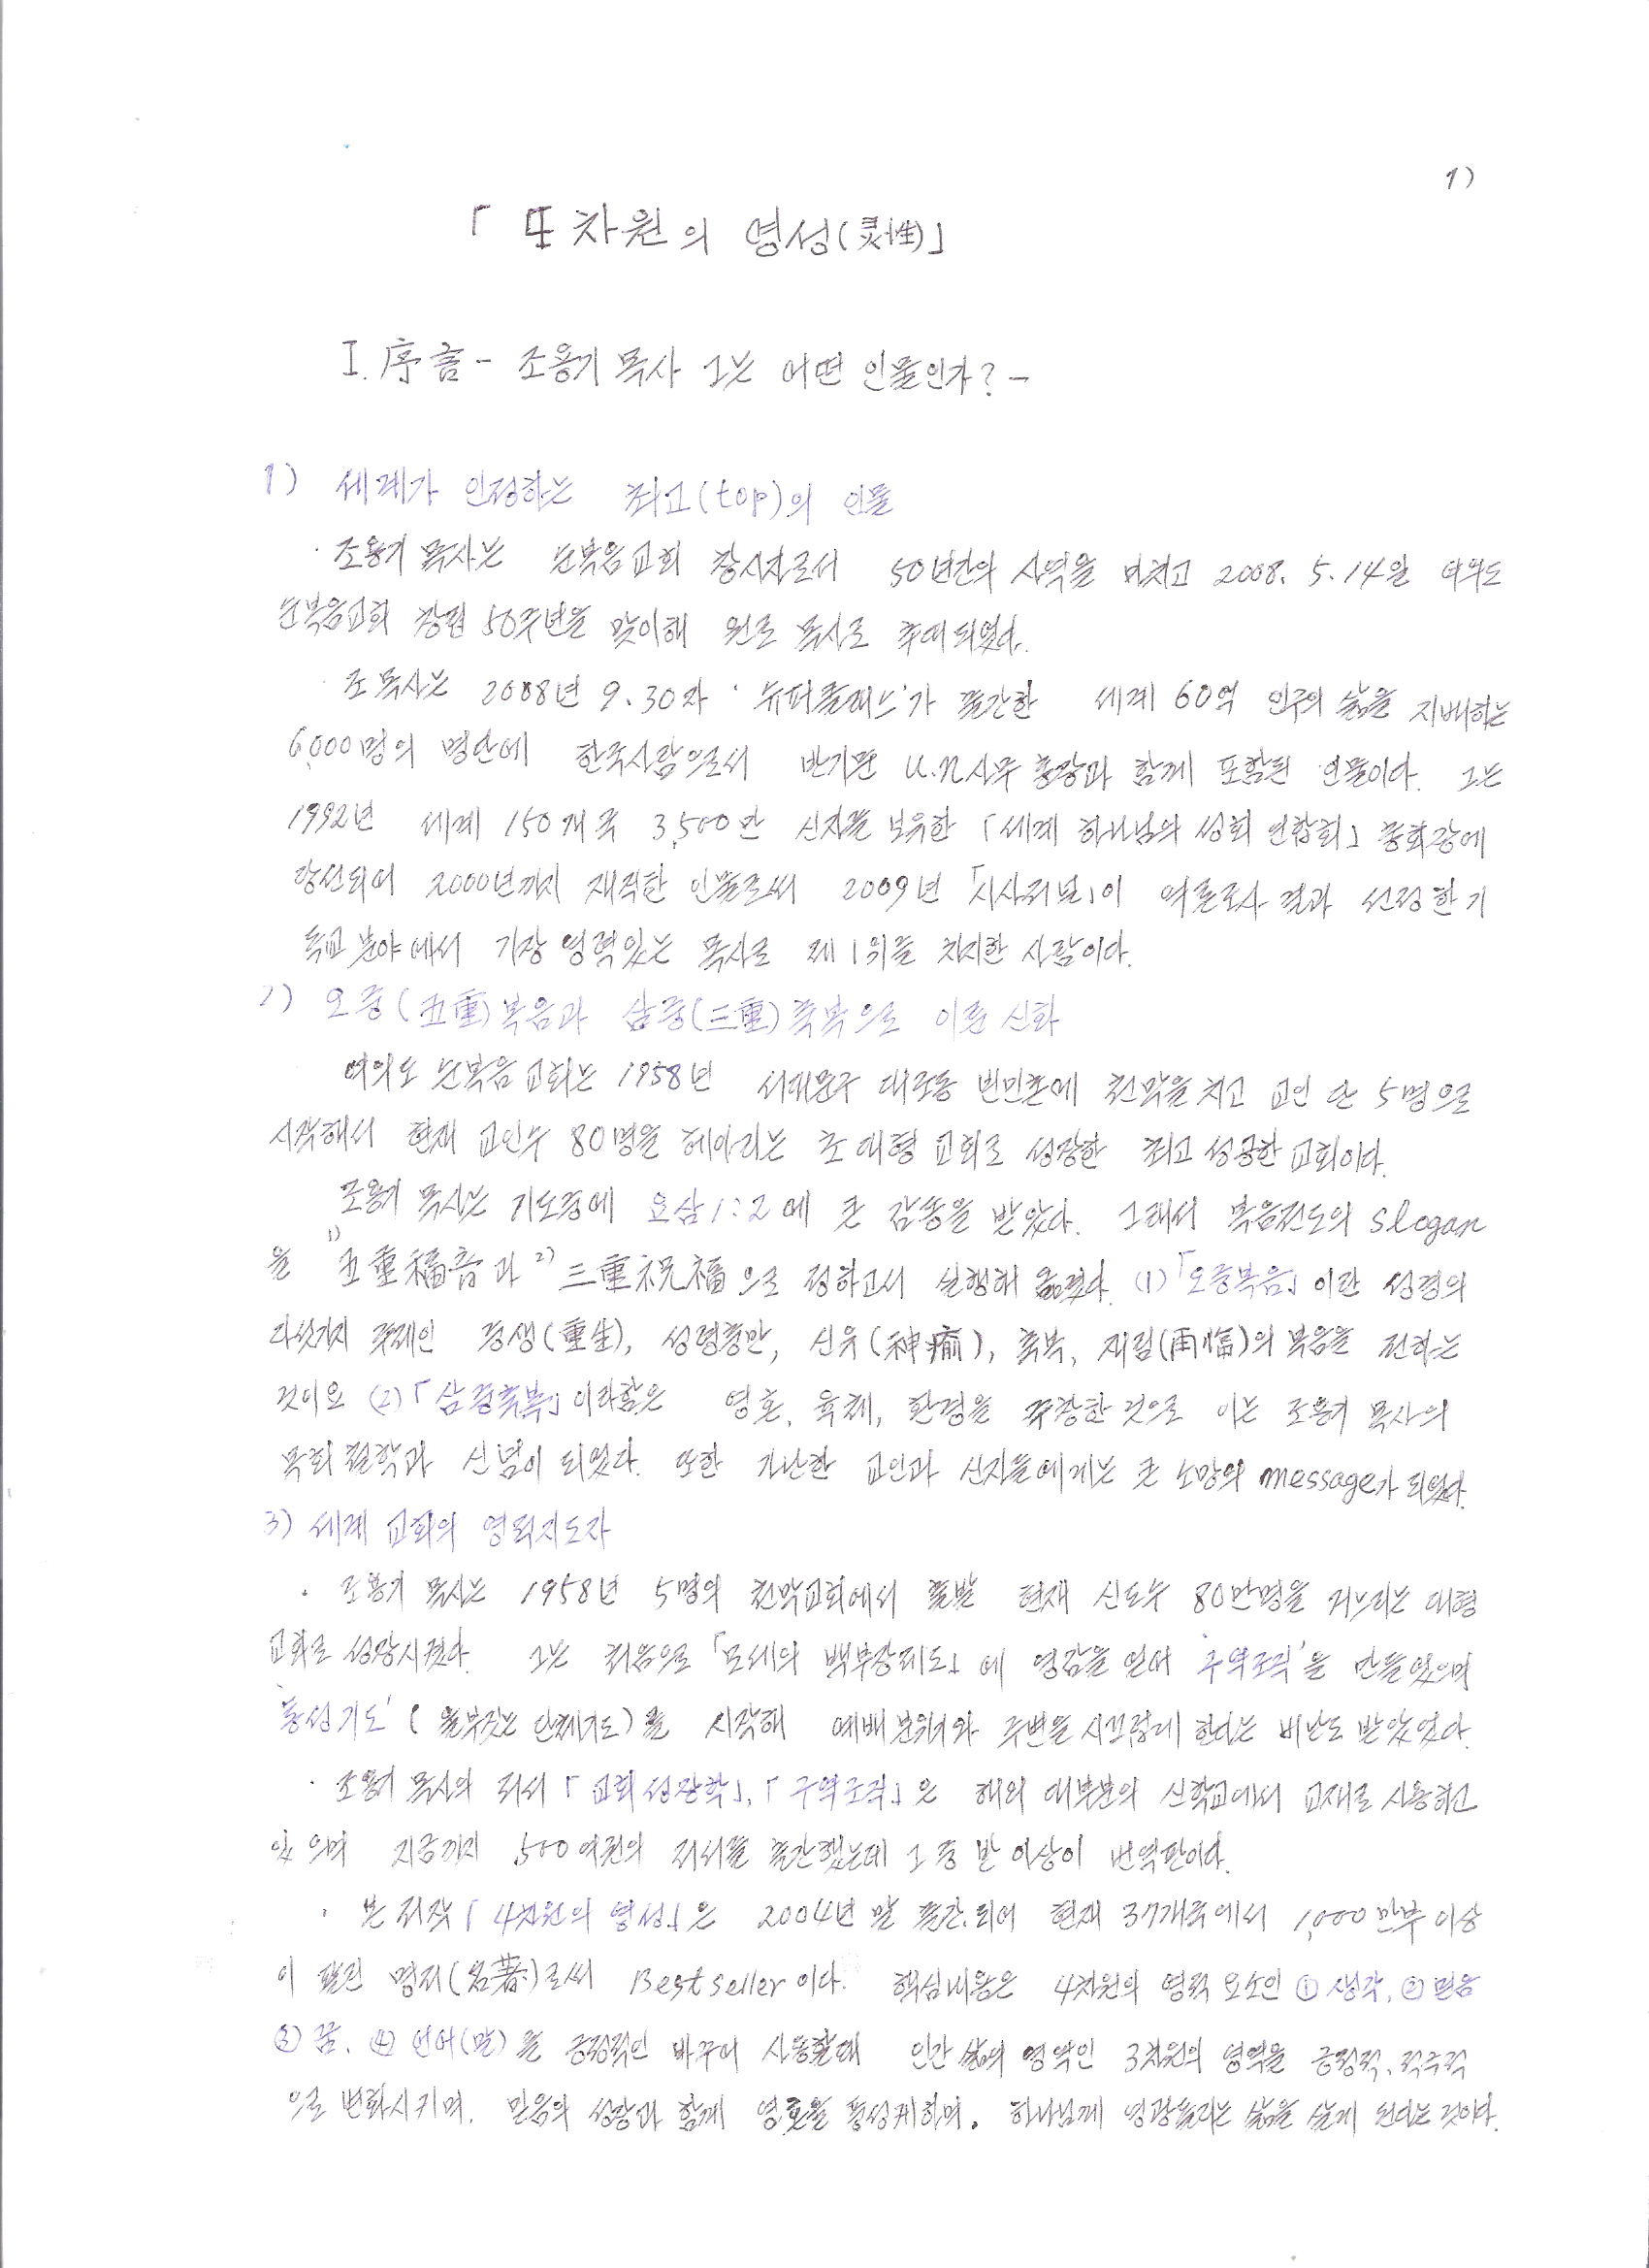 1)
「4차원의 영성(灵性)」
I. 序言 - 조용기 목사 그는 어떤 인물인가? -
1) 세계가 인정하는 최고(top)의 인물
· 조용기 목사는 순복음교회 창시자로서 50년간의 사역을 마치고 2008. 5. 14일 여의도
순복음교회 창립 50주년을 맞이해 원로 목사로 추대되었다.
· 조 목사는 2008년 9. 30자 '슈퍼클래스'가 출간한 세계 60억 인구의 삶을 지배하는
6,000명의 명단에 한국사람으로서 반기문 U.N사무총장과 함께 포함된 인물이다. 그는
1992년 세계 150개국 3,500만 신자를 보유한 「세계 하나님의 성회 연합회」 총회장에
당선되어 2000년까지 재직한 인물로써 2009년 「시사저널」이 여론조사 결과 선정한 기
독교 분야에서 가장 영력있는 목사로 제1위를 차지한 사람이다.
2) 오중(五重)복음과 삼중(三重)축복으로 이룬 신화
여의도 순복음교회는 1958년 서대문구 대조동 빈민촌에 천막을 치고 교인 단 5명으로
시작해서 현재 교인수 80명을 헤아리는 초대형 교회로 성장한 최고 성공한 교회이다.
조용기 목사는 기도중에 요삼1:2에 큰 감동을 받았다. 그래서 복음전도의 slogan
을 1) 五重福音과 2) 三重祝福으로 정하고서 실행해 옮겼다. (1)「오중복음」이란 성경의
다섯가지 주제인 중생(重生), 성령충만, 신유(神癒), 축복, 재림(再臨)의 복음을 전하는
것이요 (2)「삼중축복」이라함은 영혼, 육체, 환경을 주장한 것으로 이는 조용기 목사의
목회철학과 신념이 되었다. 또한 가난한 교인과 신자들에게는 큰 소망의 message가 되었다.
3) 세계 교회의 영적지도자
· 조용기 목사는 1958년 5명의 천막교회에서 출발 현재 신도수 80만명을 거느리는 대형
교회로 성장시켰다. 그는 처음으로 「모세의 백부장제도」에 영감을 얻어 '구역조직'을 만들었으며
'통성기도' (울부짖는 단체기도)를 시작해 예배분위기와 주변을 시끄럽게 한다는 비난도 받았었다.
· 조용기 목사의 저서 「교회성장학」, 「구역조직」은 해외 대부분의 신학교에서 교재로 사용하고
있으며 지금까지 500여권의 저서를 출간했는데 그 중 반 이상이 번역판이다.
· 본 저작 「4차원의 영성」은 2004년 말 출간되어 현재 37개국에서 1,000만부 이상
이 팔린 명저(名著)로써 Best seller이다. 핵심내용은 4차원의 영적 요소인 ① 생각, ② 믿음
③ 꿈, ④ 언어(말)를 긍정적인 바꾸어 사용할때 인간 삶의 영역인 3차원의 영역을 긍정적, 적극적
으로 변화시키며, 믿음의 성장과 함께 영혼을 풍성케하며, 하나님께 영광돌리는 삶을 살게 된다는 것이다.